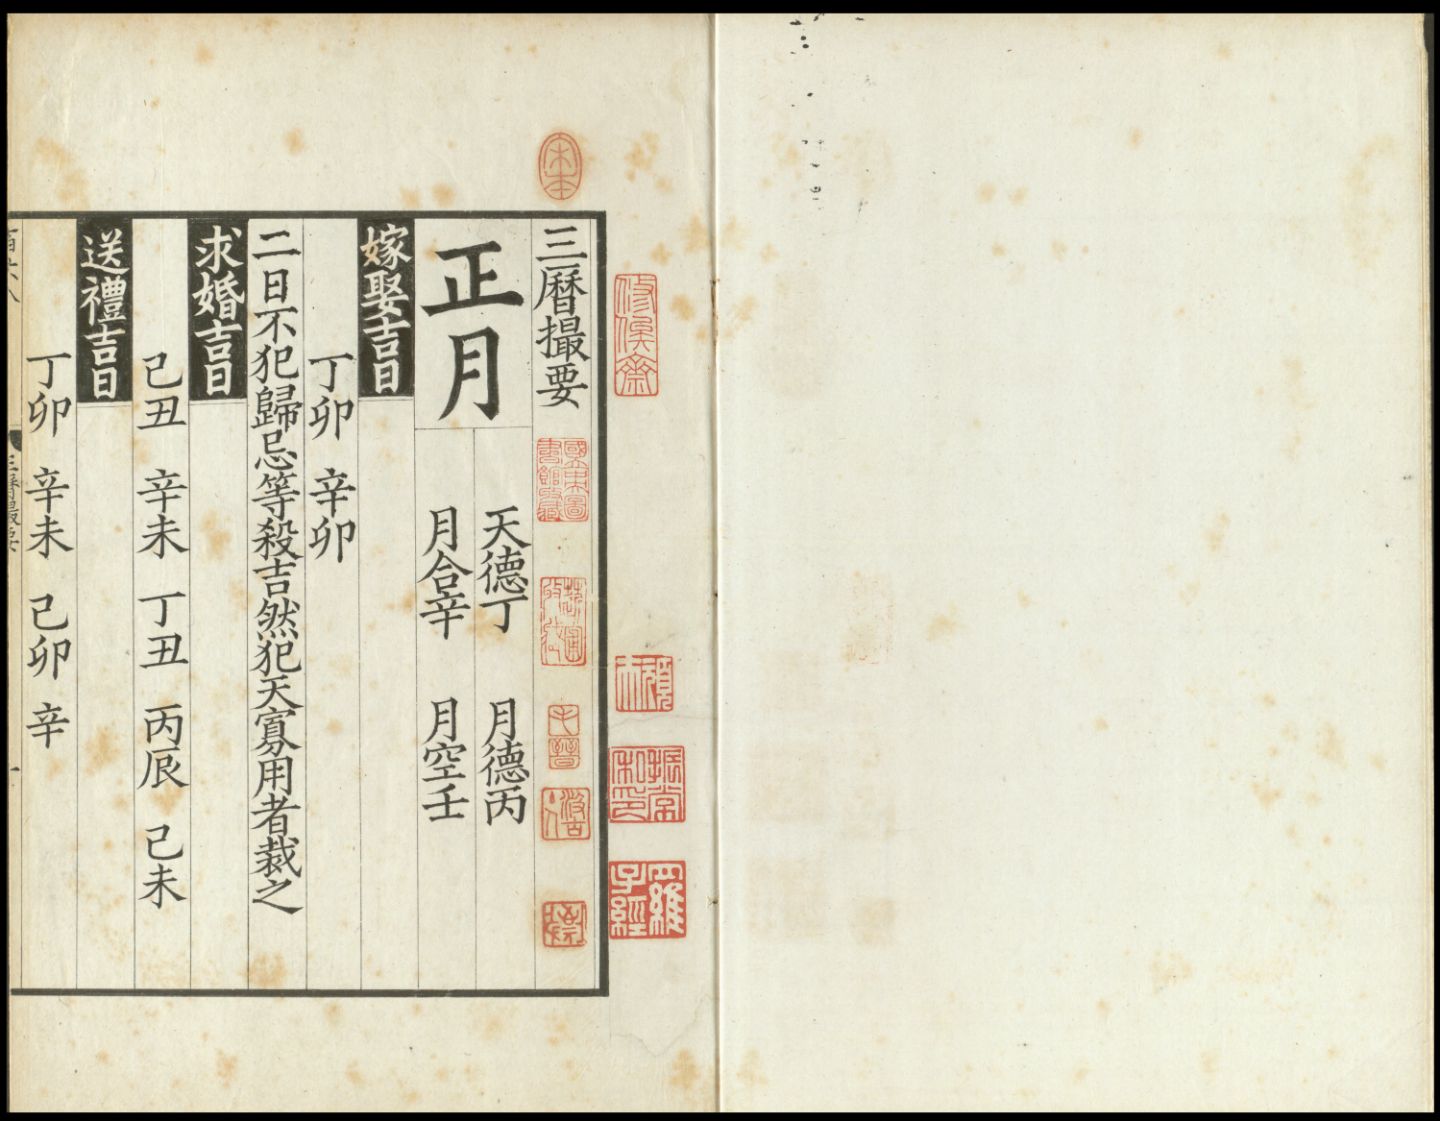 三曆撮要
正月
天德丁 月德丙
月合辛 月空壬
嫁娶吉日
丁卯 辛卯
二日不犯歸忌等殺吉然犯天寡用者裁之
求婚吉日
己丑 辛未 丁丑 丙辰 己未
送禮吉日
丁卯 辛未 己卯 辛
三曆撮要
一
國立中央圖書館收藏
羅子經